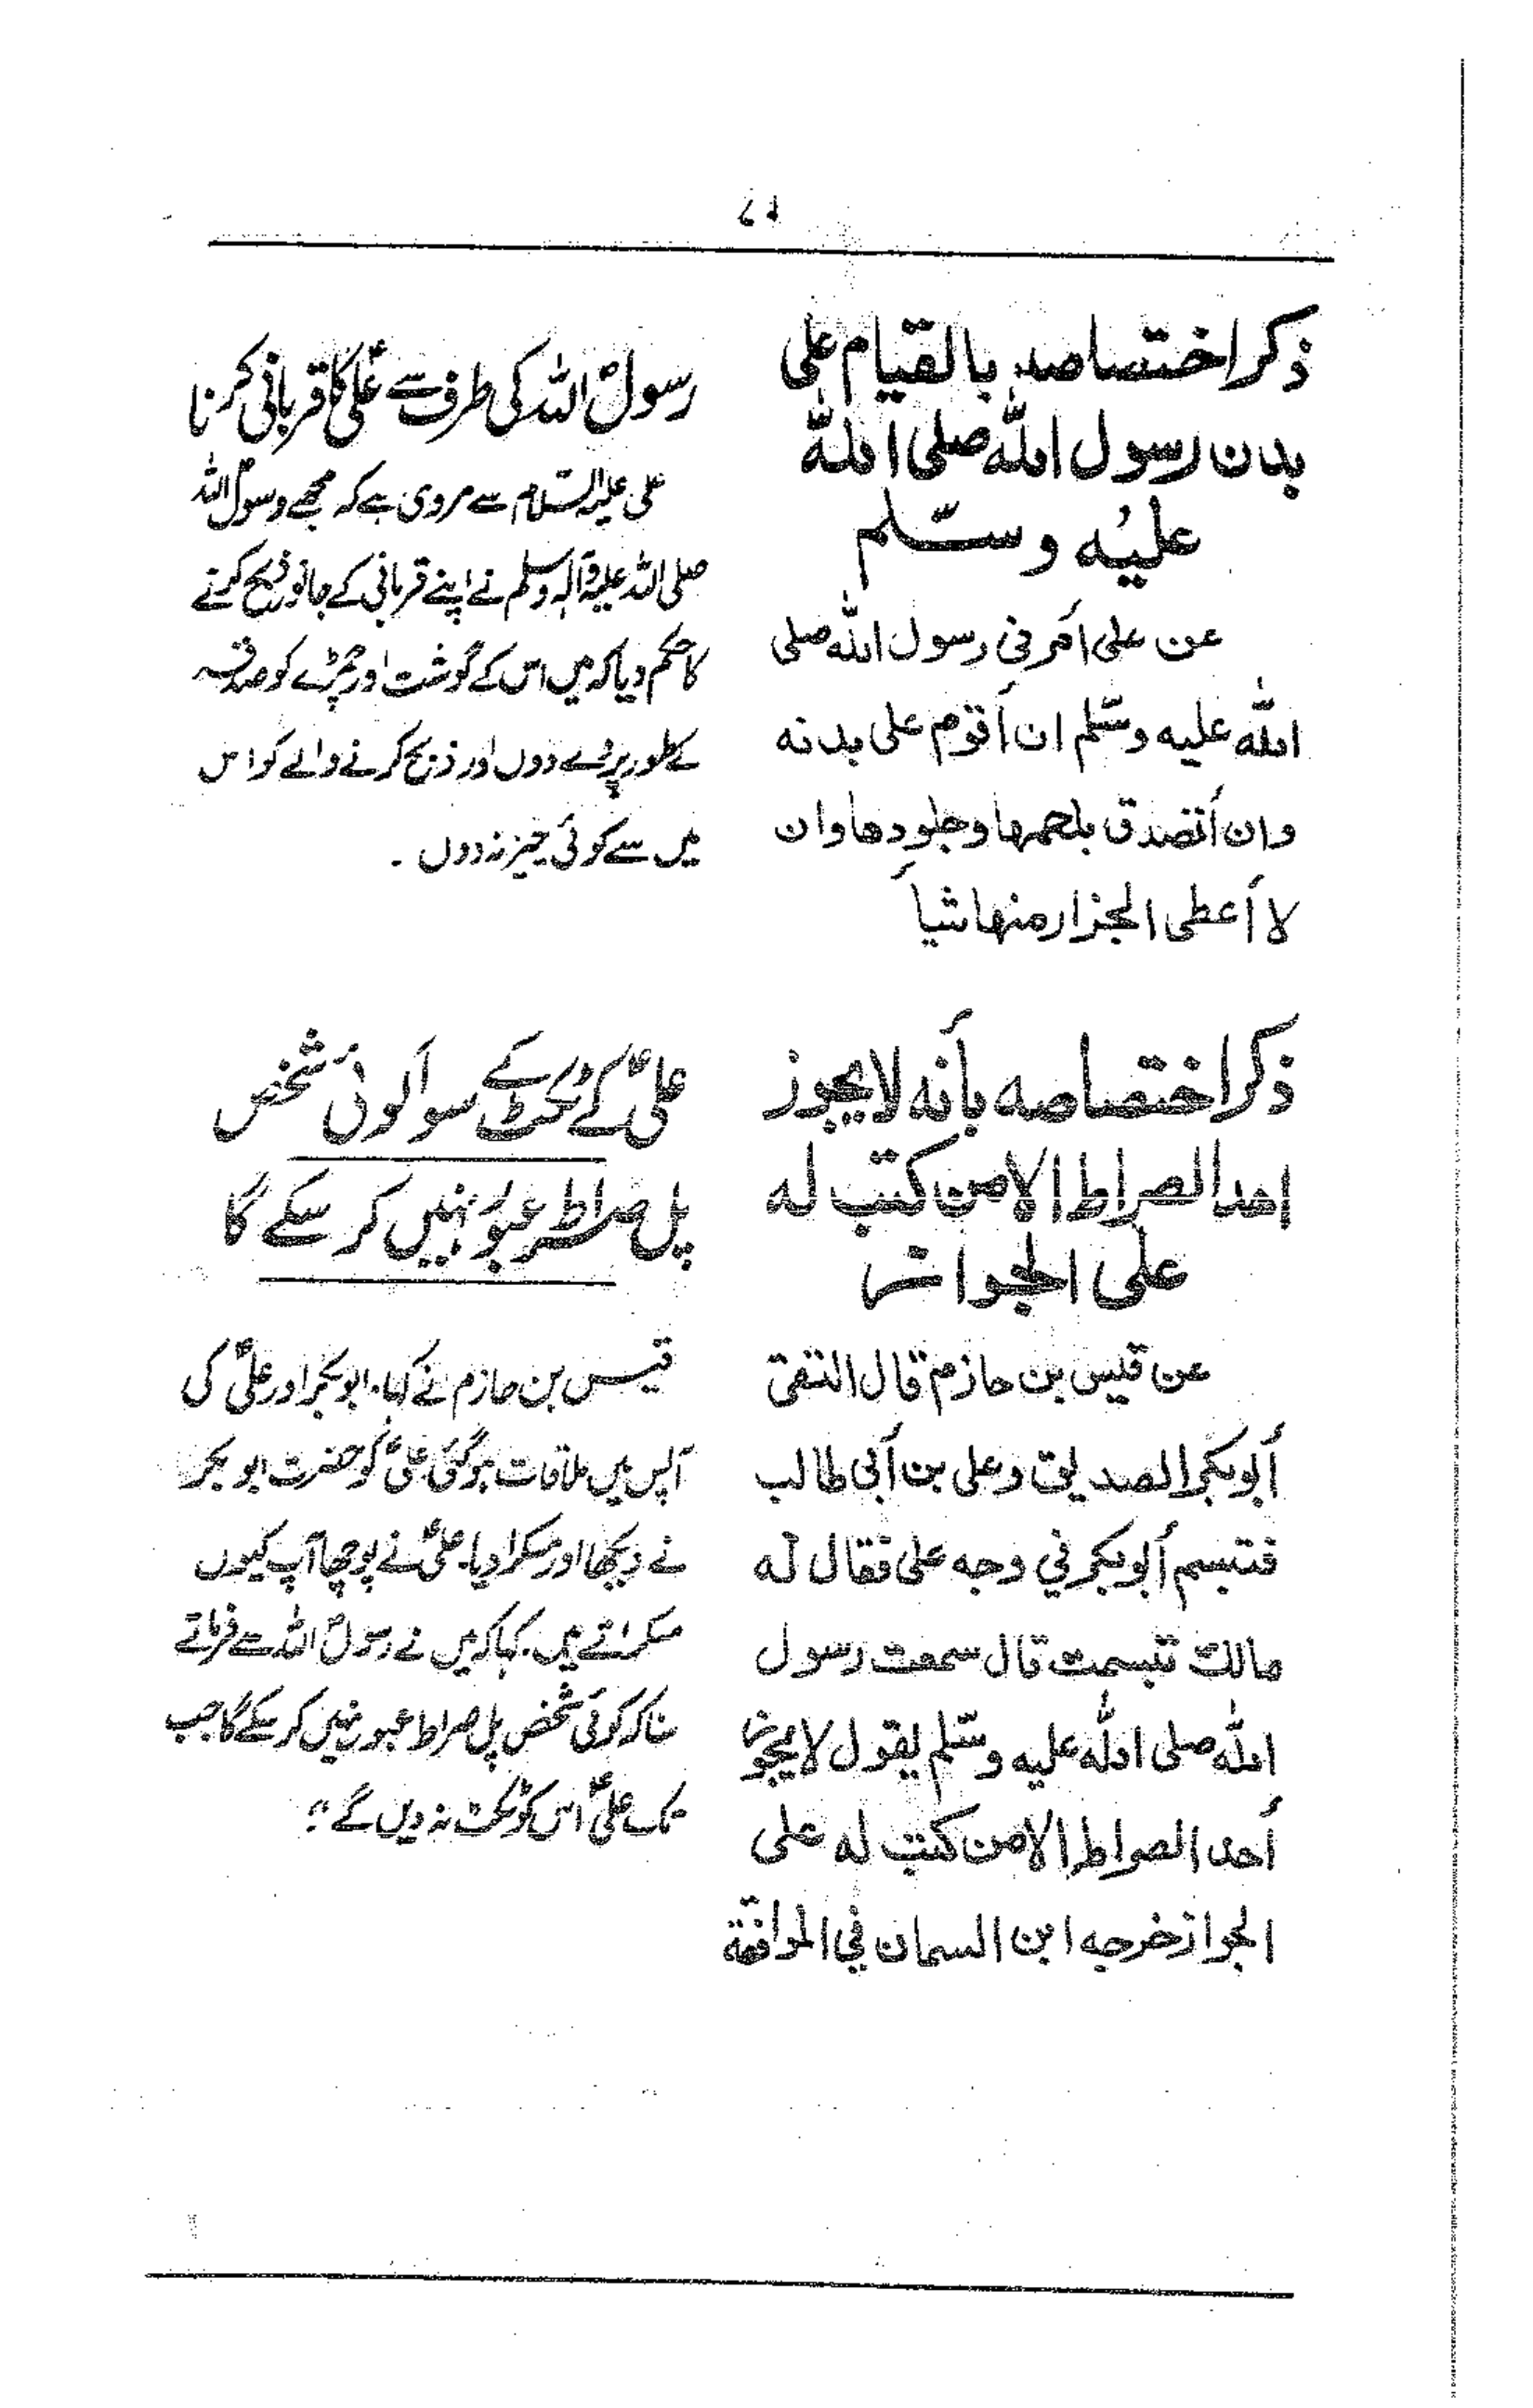 ذكر اختصاصه بالقيام على
بدن رسول الله صلى الله
عليه وسلّم
عن على أمرني رسول الله صلى
الله عليه وسلّم ان أقوم على بدنه
وان أتصدق بلحمها وجلودها وان
لا أعطى الجزار منها شيأ
رسولؐ اللہ کی طرف سے علیؑ کا قربانی کرنا
علی علیہ السّلام سے مروی ہے کہ مجھے رسولؐ اللہ
صلی اللہ علیہ وآلہ وسلم نے اپنے قربانی کے جانور ذبح کرنے
کا حکم دیا کہ میں اس کے گوشت اور چمڑے کو صدقہ
کے طور پر دے دوں اور ذبح کرنے والے کو اس
میں سے کوئی چیز نہ دوں ۔
ذكر اختصاصه بأنه لا يجوز
احد الصراط الا من كتب له
على الجواز
عن قيس بن حازم قال التقى
أبو بكر الصديق وعلى بن أبى طالب
فتبسم أبو بكر في وجه على فقال له
مالك تبسمت قال سمعت رسول
الله صلى الله عليه وسّلم يقول لا يجوز
أحد الصراط الا من كتب له على
الجواز خرجه ابن السمان في الموافقة
علیؑ کے ٹکٹ کے سوا کوئی شخص
پل صراط عبور نہیں کر سکے گا
قیس بن حازم نے کہا۔ ابوبکر اور علیؑ کی
آپس میں ملاقات ہوگئی۔ علیؑ کو حضرت ابو بکر
نے دیکھا اور مسکرا دیا۔ علیؑ نے پوچھا آپ کیوں
مسکراتے ہیں۔ کہا کہ میں نے رسولؐ اللہ سے فرماتے
سنا کہ کوئی شخص پل صراط عبور نہیں کر سکے گا جب
تک علیؑ اس کو ٹکٹ نہ دیں گے"